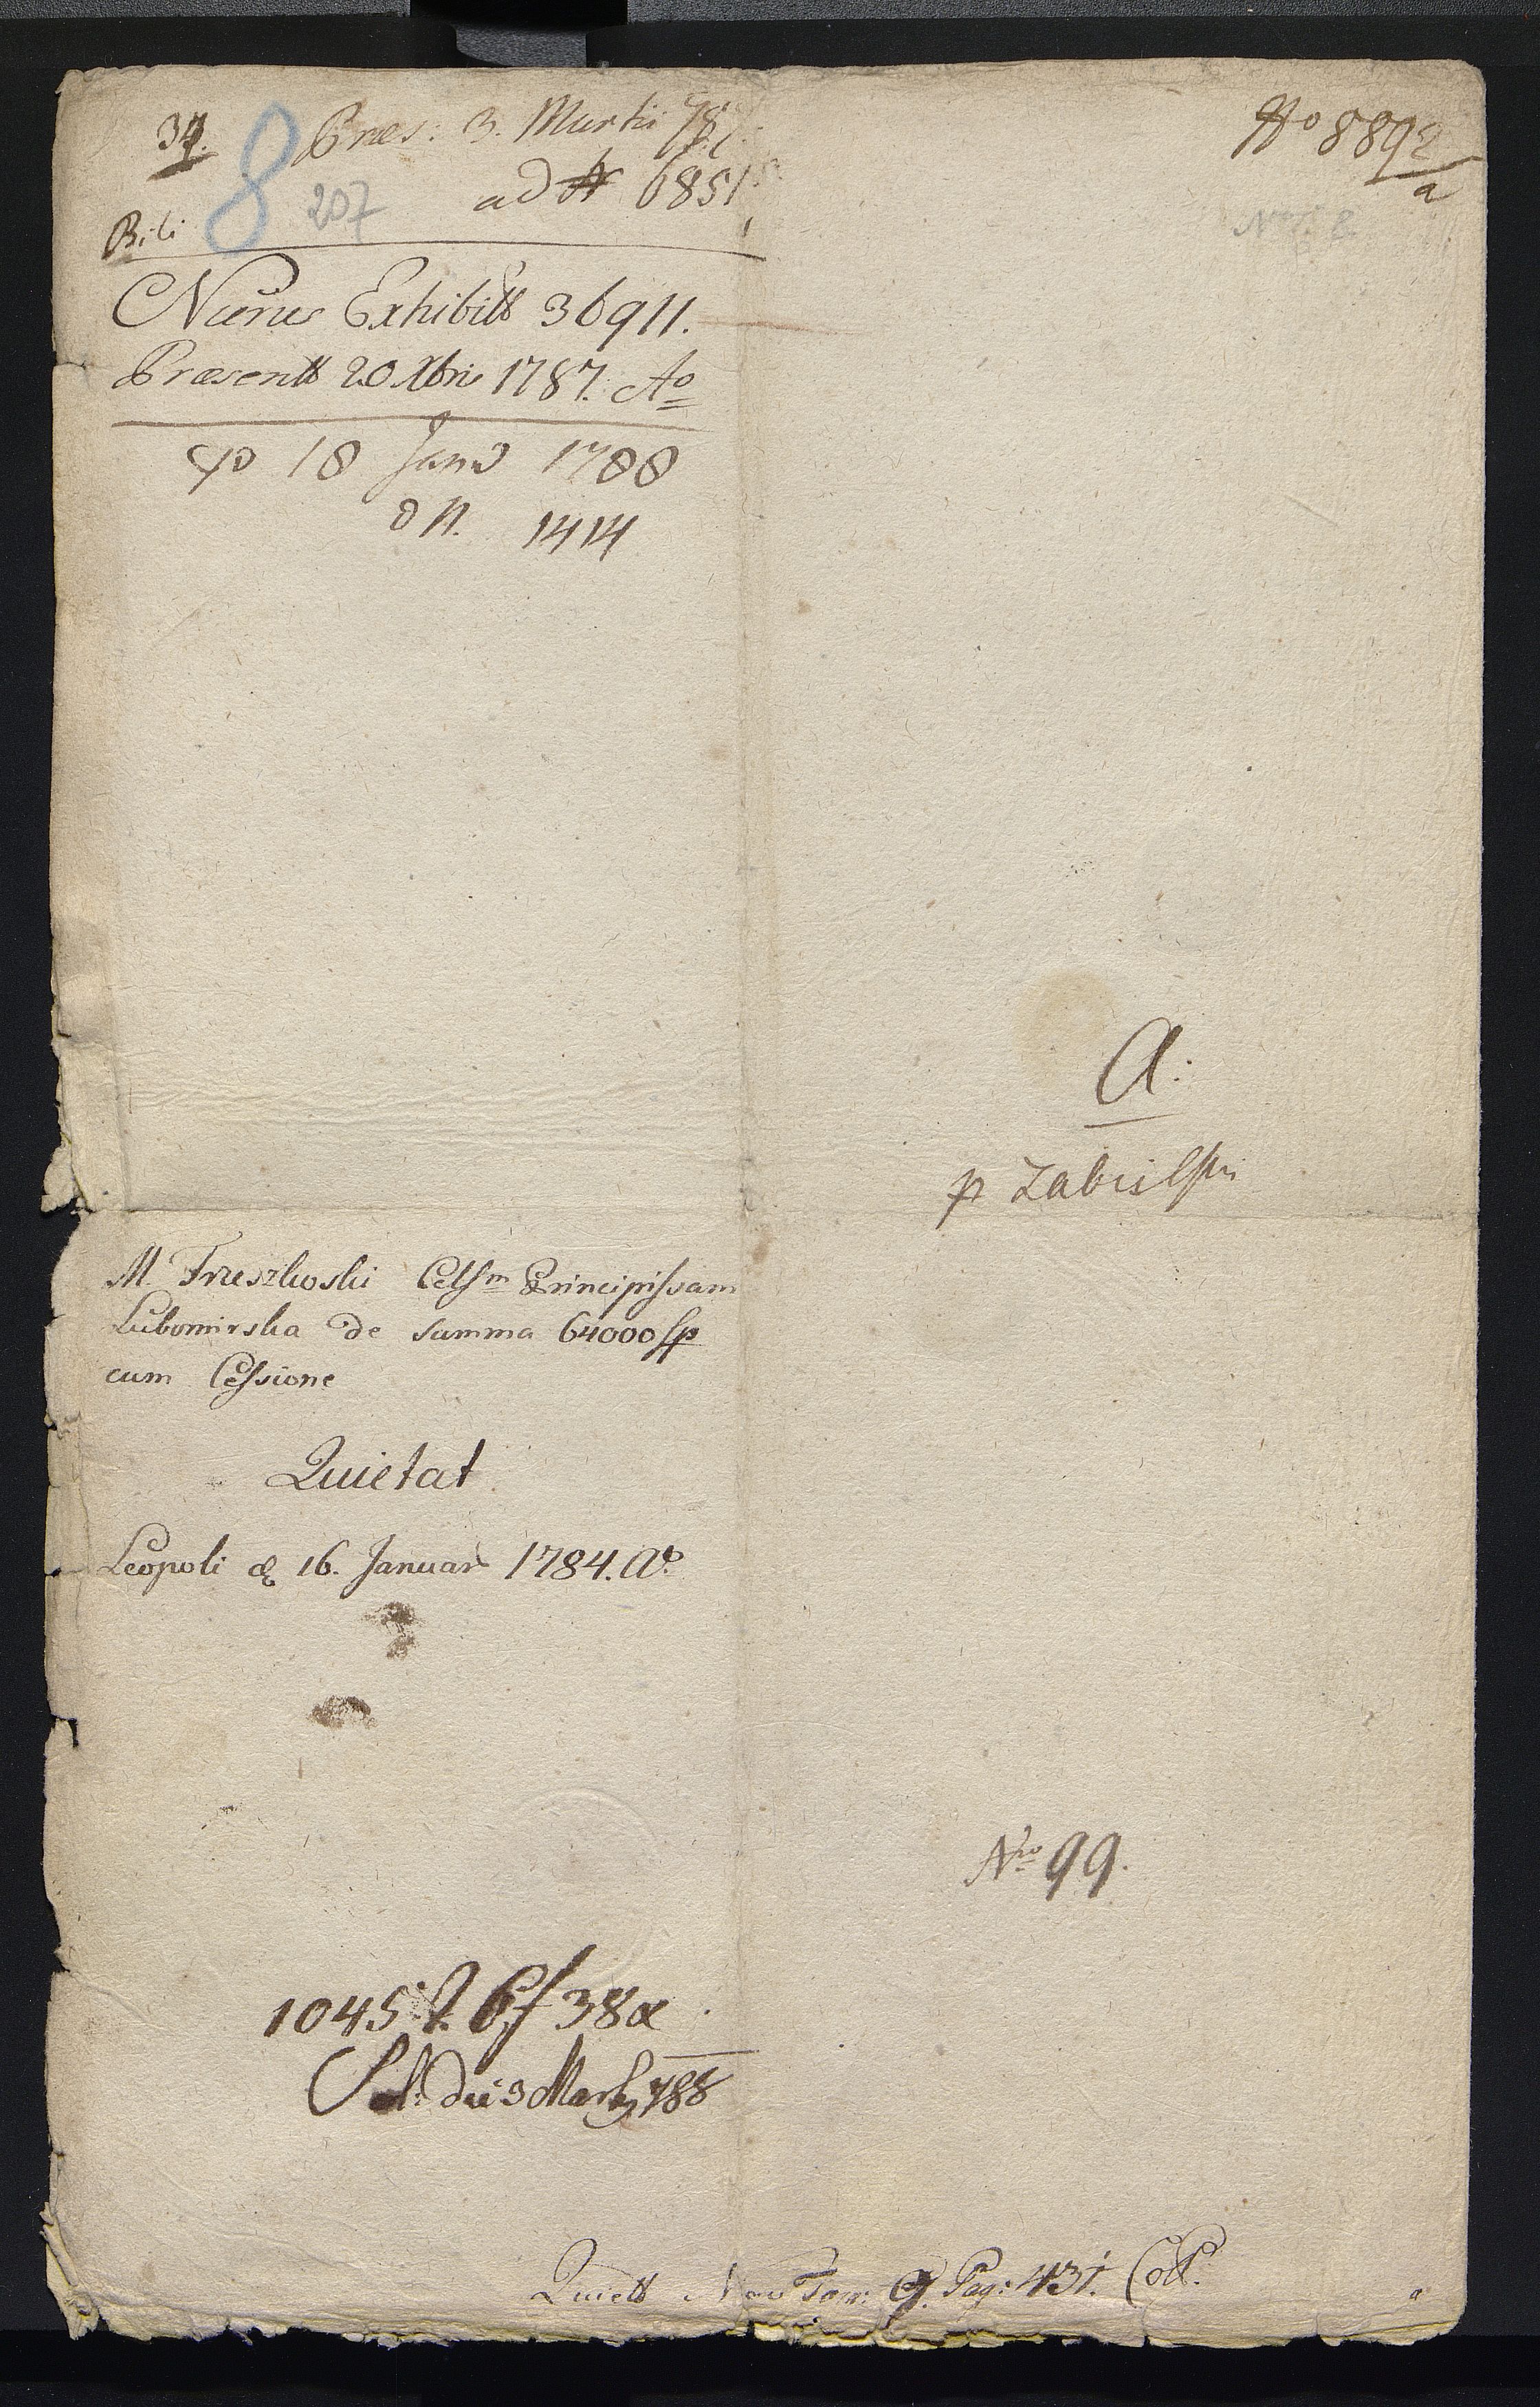 34.
8
207
Præs: 3. Martii 787.
ad N 6851
No 8892/a
Numerus Exhibiti 36911.
Præsent 20 Xbris 1787. Ao
18 Janu 1788
N. 1414
A:
p Zabielski
M Truszkoski Celsm Principissam
Lubomirska de Summa 64000 fp
cum Cessione
Quietat
Leopoli 16. Januar 1784. Ao
Nro 99.
1045: 6f 38x
Sol: die 3 Marty 788
Quiett Nov Tom: 9. Pag: 431. Coll.